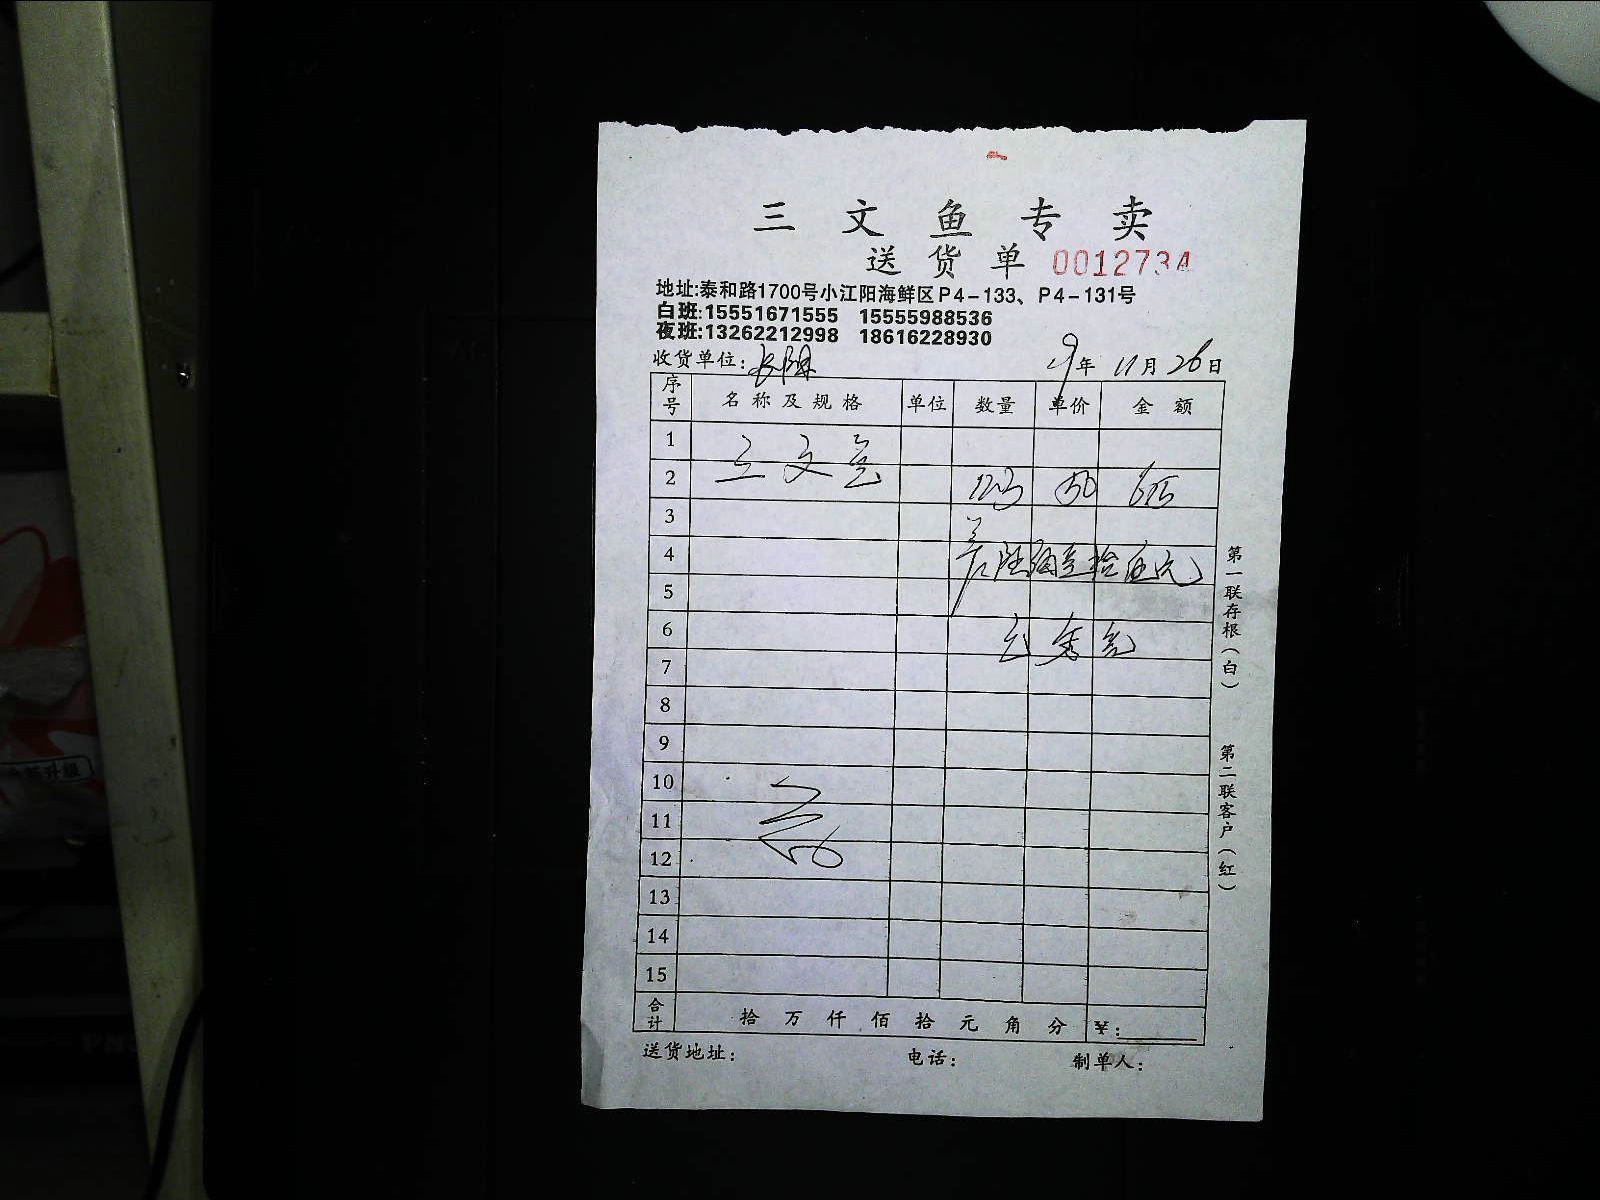 三文鱼专卖
送货单 0012734
地址:泰和路1700号小江阳海鲜区P4-133、P4-131号
白班:15551671555 15555988536
夜班:13262212998 18616228930
收货单位: 19年 11月 26日
序号 名称及规格 单位 数量 单价 金额
1
2 三文鱼 12.3 50 615
3
4
5
6
7
8
9
10
11
12
13
14
15
合计 拾 万 仟 佰 拾 元 角 分 ¥:
送货地址: 电话: 制单人:
第一联存根(白)
第二联客户(红)
升級